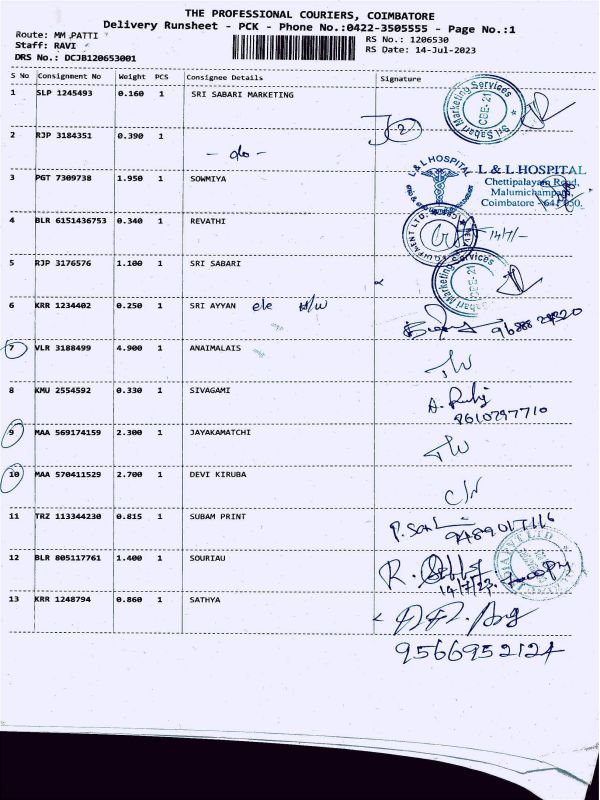 THE PROFESSIONAL COURIERS, COIMBATORE
Delivery Runsheet - PCK - Phone No.:0422-3505555 - Page No.:1
Route: MM PATTI RS No.: 1206530
Staff: RAVI RS Date: 14-Jul-2023
DRS No.: DCJB120653001
S No Consignment No Weight PCS Consignee Details Signature
1 SLP 1245493 0.160 1 SRI SABARI MARKETING
Sri Sabari Marketing Services
CBE-21
2 RJP 3184351 0.390 1
- do -
2
3 PGT 7309738 1.950 1 SOWMIYA
L & L HOSPITAL
L & L HOSPITAL
Chettipalayam Road,
Malumichampatti,
Coimbatore - 641 050.
4 BLR 6151436753 0.340 1 REVATHI
14/7/-
5 RJP 3176576 1.100 1 SRI SABARI
Marketing Services
CBE-21
6 KRR 1234402 0.250 1 SRI AYYAN ele H/W
7 VLR 3188499 4.900 1 ANAIMALAIS
8 KMU 2554592 0.330 1 SIVAGAMI
8610797710
9 MAA 569174159 2.300 1 JAYAKAMATCHI
10 MAA 570411529 2.700 1 DEVI KIRUBA
11 TRZ 113344230 0.815 1 SUBAM PRINT
12 BLR 805117761 1.400 1 SOURIAU
14/7/23
13 KRR 1248794 0.860 1 SATHYA
9566952124